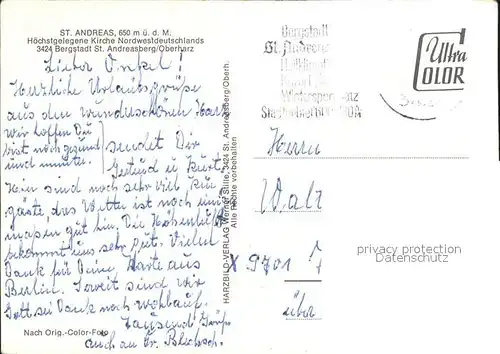 ST. ANDREAS, 650 m ü. d. M.
Höchstgelegene Kirche Nordwestdeutschlands
3424 Bergstadt St. Andreasberg/Oberharz
Lieber Onkel!
Herzliche Urlaubsgrüße
aus dem wunderschönen Harz
wir hoffen Du
bist noch gesund
und munter.
sendet Dir
Gertrud u. Kurt.
Hier sind noch sehr viel Kur
gäste das Wetter ist noch
gut hier. Die Höhenluft
bekommt uns sehr gut. Vielen
Dank für Deine Karte aus
Berlin. Soweit sind wir
Gott sei Dank noch wohlauf.
Tausend Grüße
auch an Fr.
Nach Orig.-Color-Foto
HARZBILD-VERLAG Werner Stille, 3424 St. Andreasberg/Oberh.
Alle Rechte vorbehalten
Bergstadt
St. Andreas
Wintersport
Ultra
COLOR
Herrn
Walt
X 9701
über
privacy protection
Datenschutz